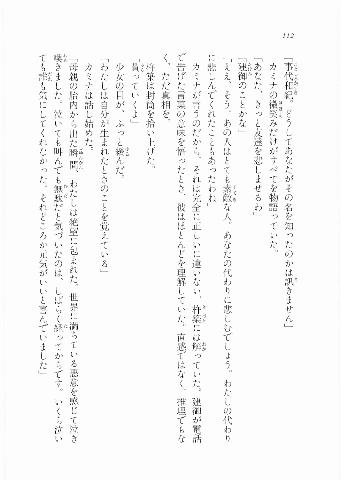 112
「事代和紀。どうしてあなたがその名を知ったのかは訊きません」
カミナの微笑みだけがすべてを物語っていた。
「あなた、きっと友達を悲しませるわ」
「建御のことかな」
「ええ、そう。あの人はとても素敵な人。あなたの代わりに悲しむでしょう。わたしの代わり
に悲しんでくれたこともあったわね」
カミナが言うのだから、それは完全に正しいに違いない。杵築には解っていた。建御が電話
で告げた言葉の意味を悟ったとき、彼はほとんどを理解していた。直感ではなく、推理でもな
く、ただ真相を。
杵築は封筒を拾い上げた。
「貰っていくよ」
少女の目が、ふっと綻んだ。
「わたしは自分が生まれたときのことを覚えている」
カミナは話し始めた。
「母親の胎内から出た瞬間、わたしは絶望に包まれた。世界に満ちている悪意を感じて泣き
喚きました。泣いても叫んでも無駄だと気づいたのは、しばらく経ってからです。いくら泣い
ても誰も気にしてくれなかった。それどころか元気がいいと言んでいました」